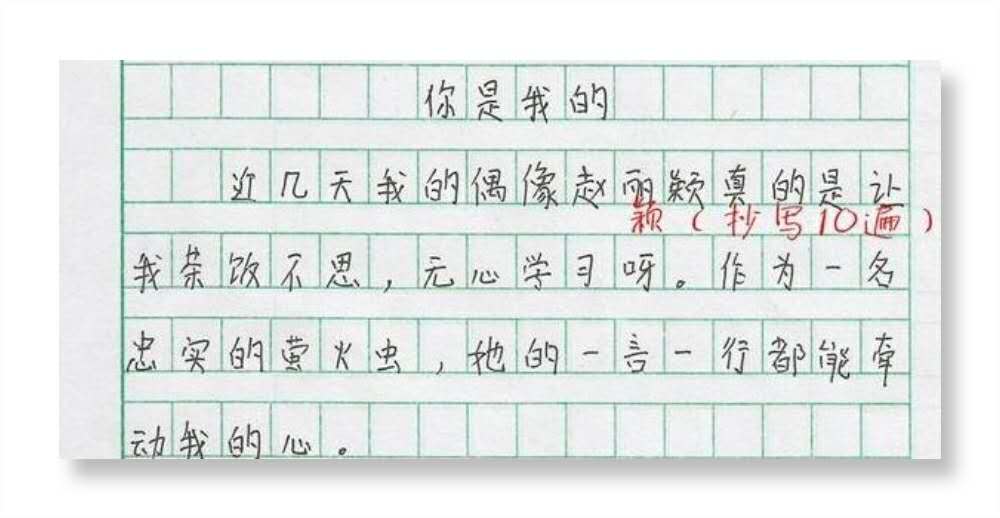 你是我的
近几天我的偶像赵丽颖真的是让
颖（抄写10遍）
我茶饭不思，无心学习呀。作为一名
忠实的萤火虫，她的一言一行都能牵
动我的心。